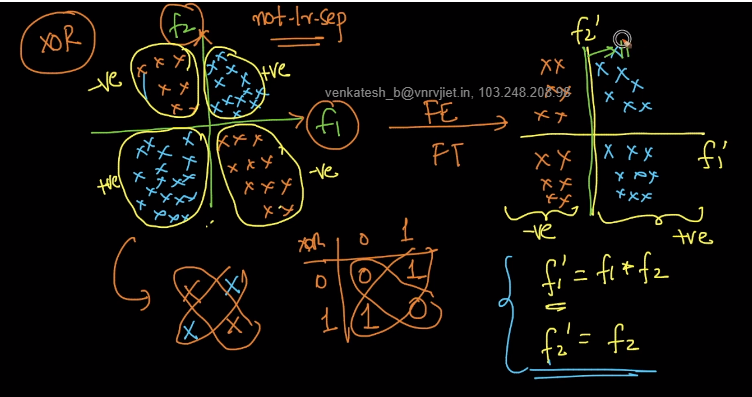 XOR
f2
not-lr-sep
-ve
+ve
f1
+ve
-ve
venkatesh_b@vnrvjiet.in, 103.248.208.98
FE
FT
f2'
f1'
-ve
+ve
XOR 0 1
0 0 1
1 1 0
f1' = f1 * f2
f2' = f2